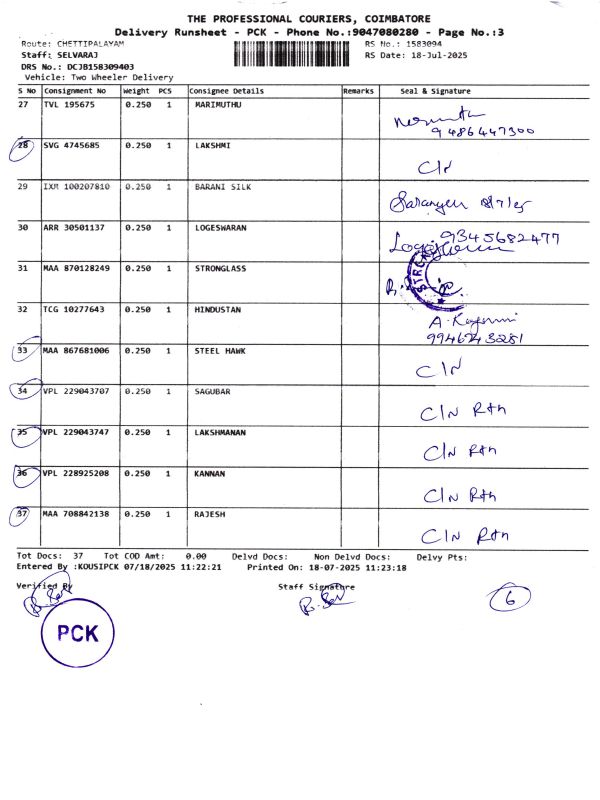 THE PROFESSIONAL COURIERS, COIMBATORE
Delivery Runsheet - PCK - Phone No.:9047080280 - Page No.:3
Route: CHETTIPALAYAM RS No.: 1583094
Staff: SELVARAJ RS Date: 18-Jul-2025
DRS No.: DCJB158309403
Vehicle: Two Wheeler Delivery
S No Consignment No Weight PCS Consignee Details Remarks Seal & Signature
27 TVL 195675 0.250 1 MARIMUTHU
9486447300
28 SVG 4745685 0.250 1 LAKSHMI
C/N
29 IXM 100207810 0.250 1 BARANI SILK
30 ARR 30501137 0.250 1 LOGESWARAN 9345682477
31 MAA 870128249 0.250 1 STRONGLASS
32 TCG 10277643 0.250 1 HINDUSTAN
9946743281
33 MAA 867681006 0.250 1 STEEL HAWK
C/N
34 VPL 229043707 0.250 1 SAGUBAR
C/N Rtn
35 VPL 229043747 0.250 1 LAKSHMANAN
C/N Rtn
36 VPL 228925208 0.250 1 KANNAN
C/N Rtn
37 MAA 708842138 0.250 1 RAJESH
C/N Rtn
Tot Docs: 37 Tot COD Amt: 0.00 Delvd Docs: Non Delvd Docs: Delvy Pts:
Entered By :KOUSIPCK 07/18/2025 11:22:21 Printed On: 18-07-2025 11:23:18
Verified By Staff Signature
6
PCK